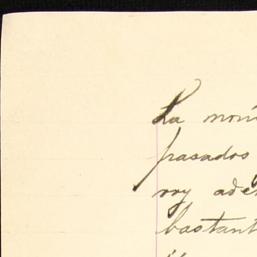 La
pasados
voy ade
bastant